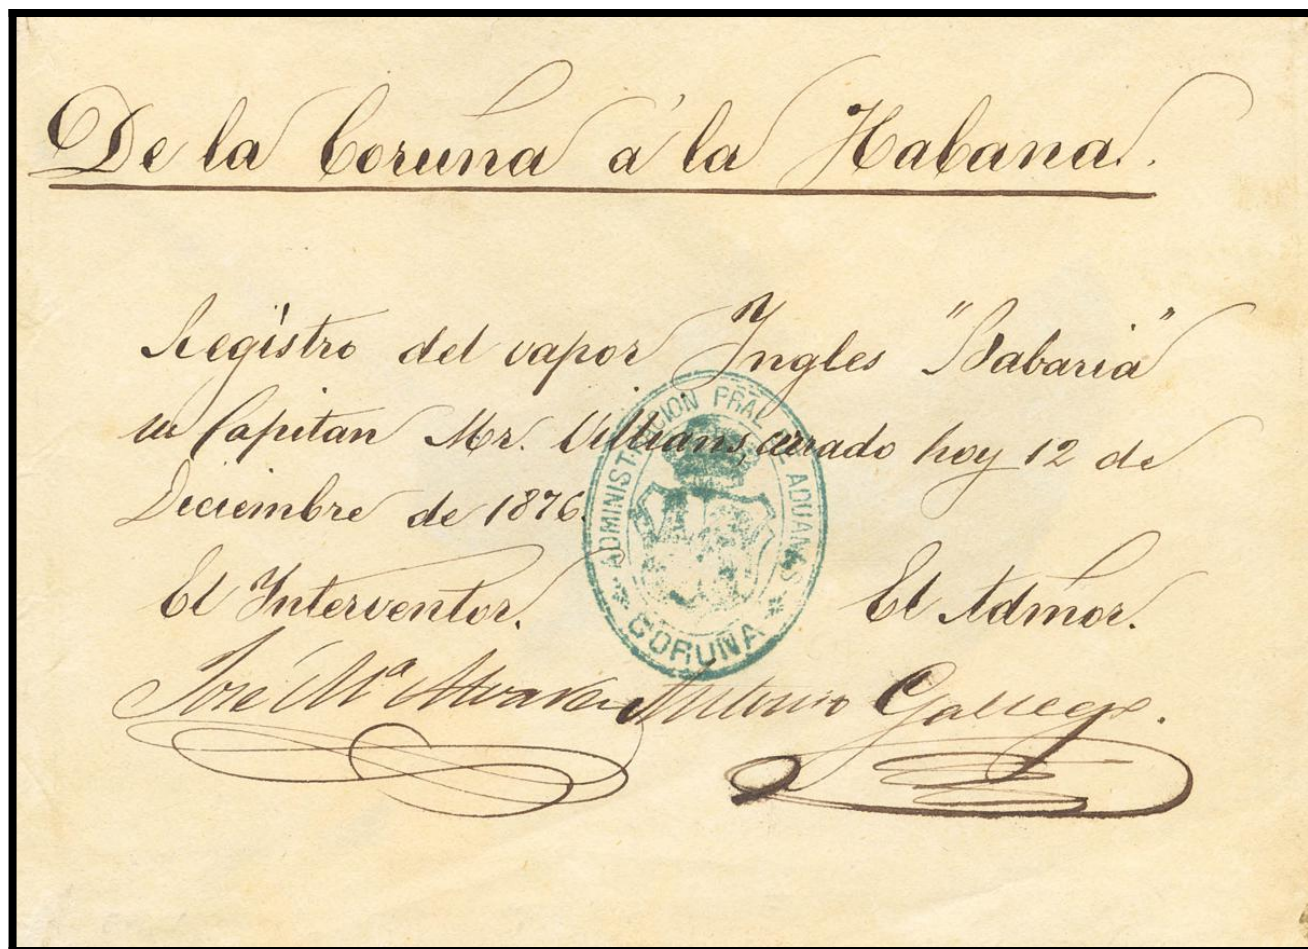 De la Coruña á la Habana.
Registro del vapor Ingles "Babaria"
su Capitan Mr. Villians, cerrado hoy 12 de
Diciembre de 1876.
ADMINISTRACION PRAL DE ADUANAS
* CORUÑA *
El Interventor. El Admor.
José Mª Alvarez Antonio Gallego.